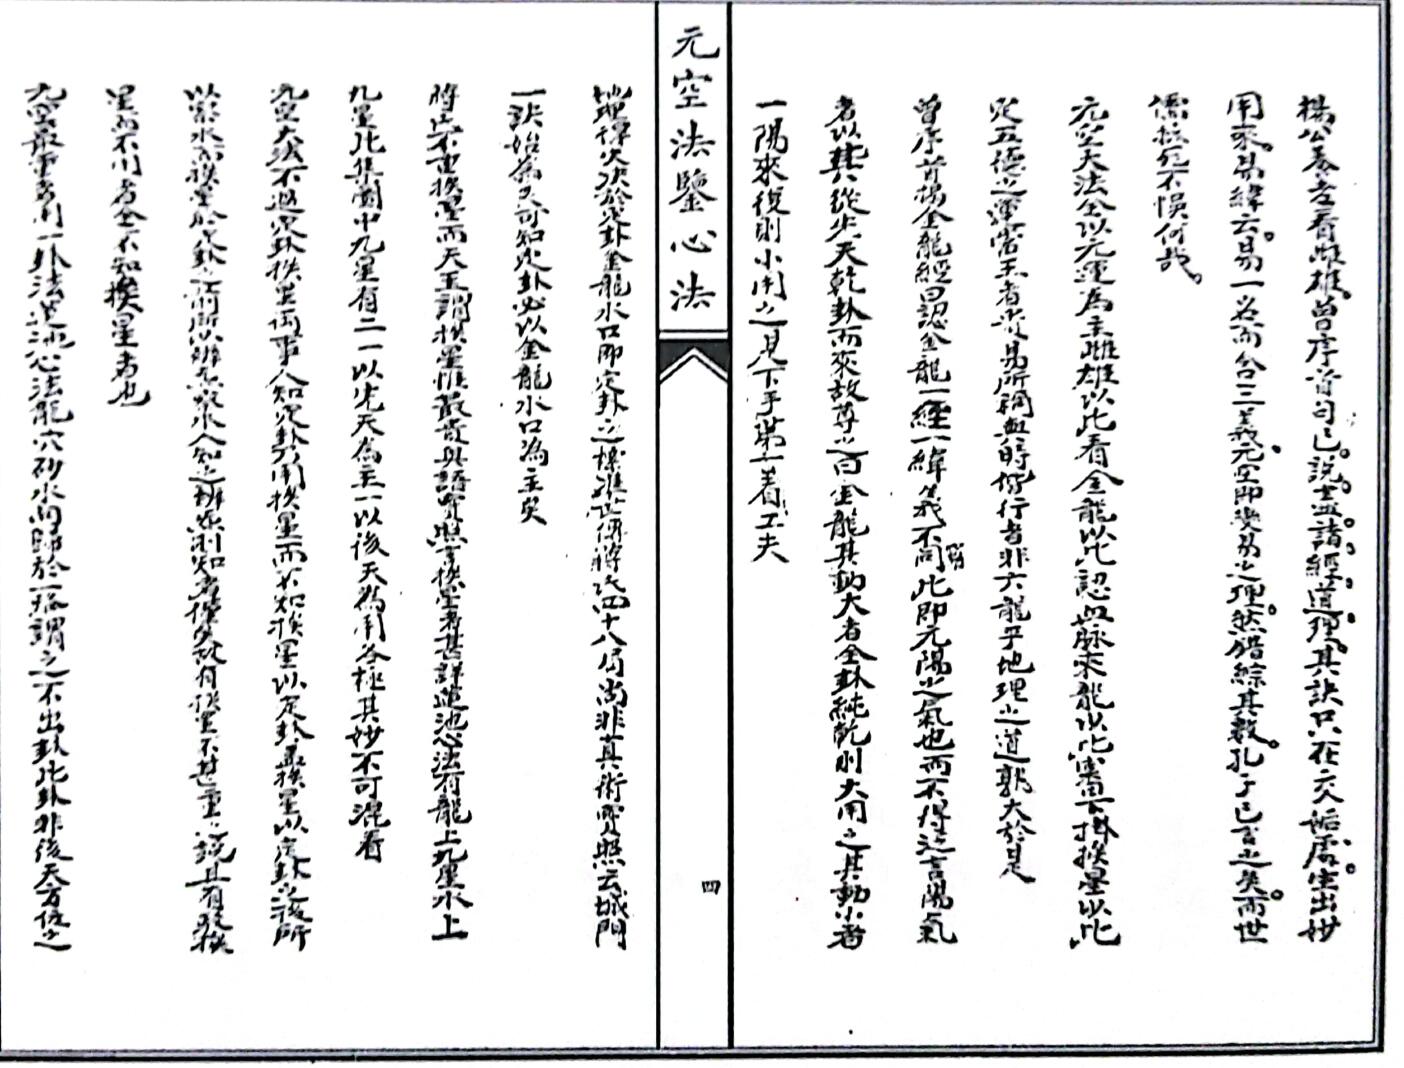 楊公養老看雌雄曾序首句已說盡諸經道理其訣只在交媾處生出妙
用來易緯云易一名而含三義元空即變易之理然錯綜其數孔子已言之矣而世
儒拉死不悞何哉
元空大法全以元運為主雌雄以此看金龍以此認血脉來龍以此審下掛挨星以此
定五德之運當王者貴易所謂與時偕行者非六龍乎地理之道郭大於是
曾序首楊金龍經曰認金龍一經一緯義不同此即元陽之氣也而不得之言陽氣
者以其從先天乾卦而來故尊之曰金龍其動大者全卦純乾則大用之其動小者
一陽來復則小用之見下手第一着工夫
元空法鑒心法
四
地理得失決於定卦金龍水口即定卦之標準世傳將水四十八局尚非真術寶照云城門
一訣始為又可知定卦必以金龍水口為主矣
將占不重挨星而天玉謂挨星惟最貴與語寶照言挨星者甚詳造池心法有龍上九星水上
九星此集蘭中九星有二一以先天為主一以後天為用各極其妙不可混看
九星大法不過定卦挨星兩事人知定卦乃用挨星而不知挨星以定卦最挨星以定卦之後所
以察水而挨星於定卦之前所以辨氣察水人知之辨氣則知者僅矣故有挨星不甚重之說且有歌挨
星而不用者全不知挨星者也
九星最重者用一卦法造池心法龍穴砂水同歸於一路謂之不出卦此卦非後天方位之